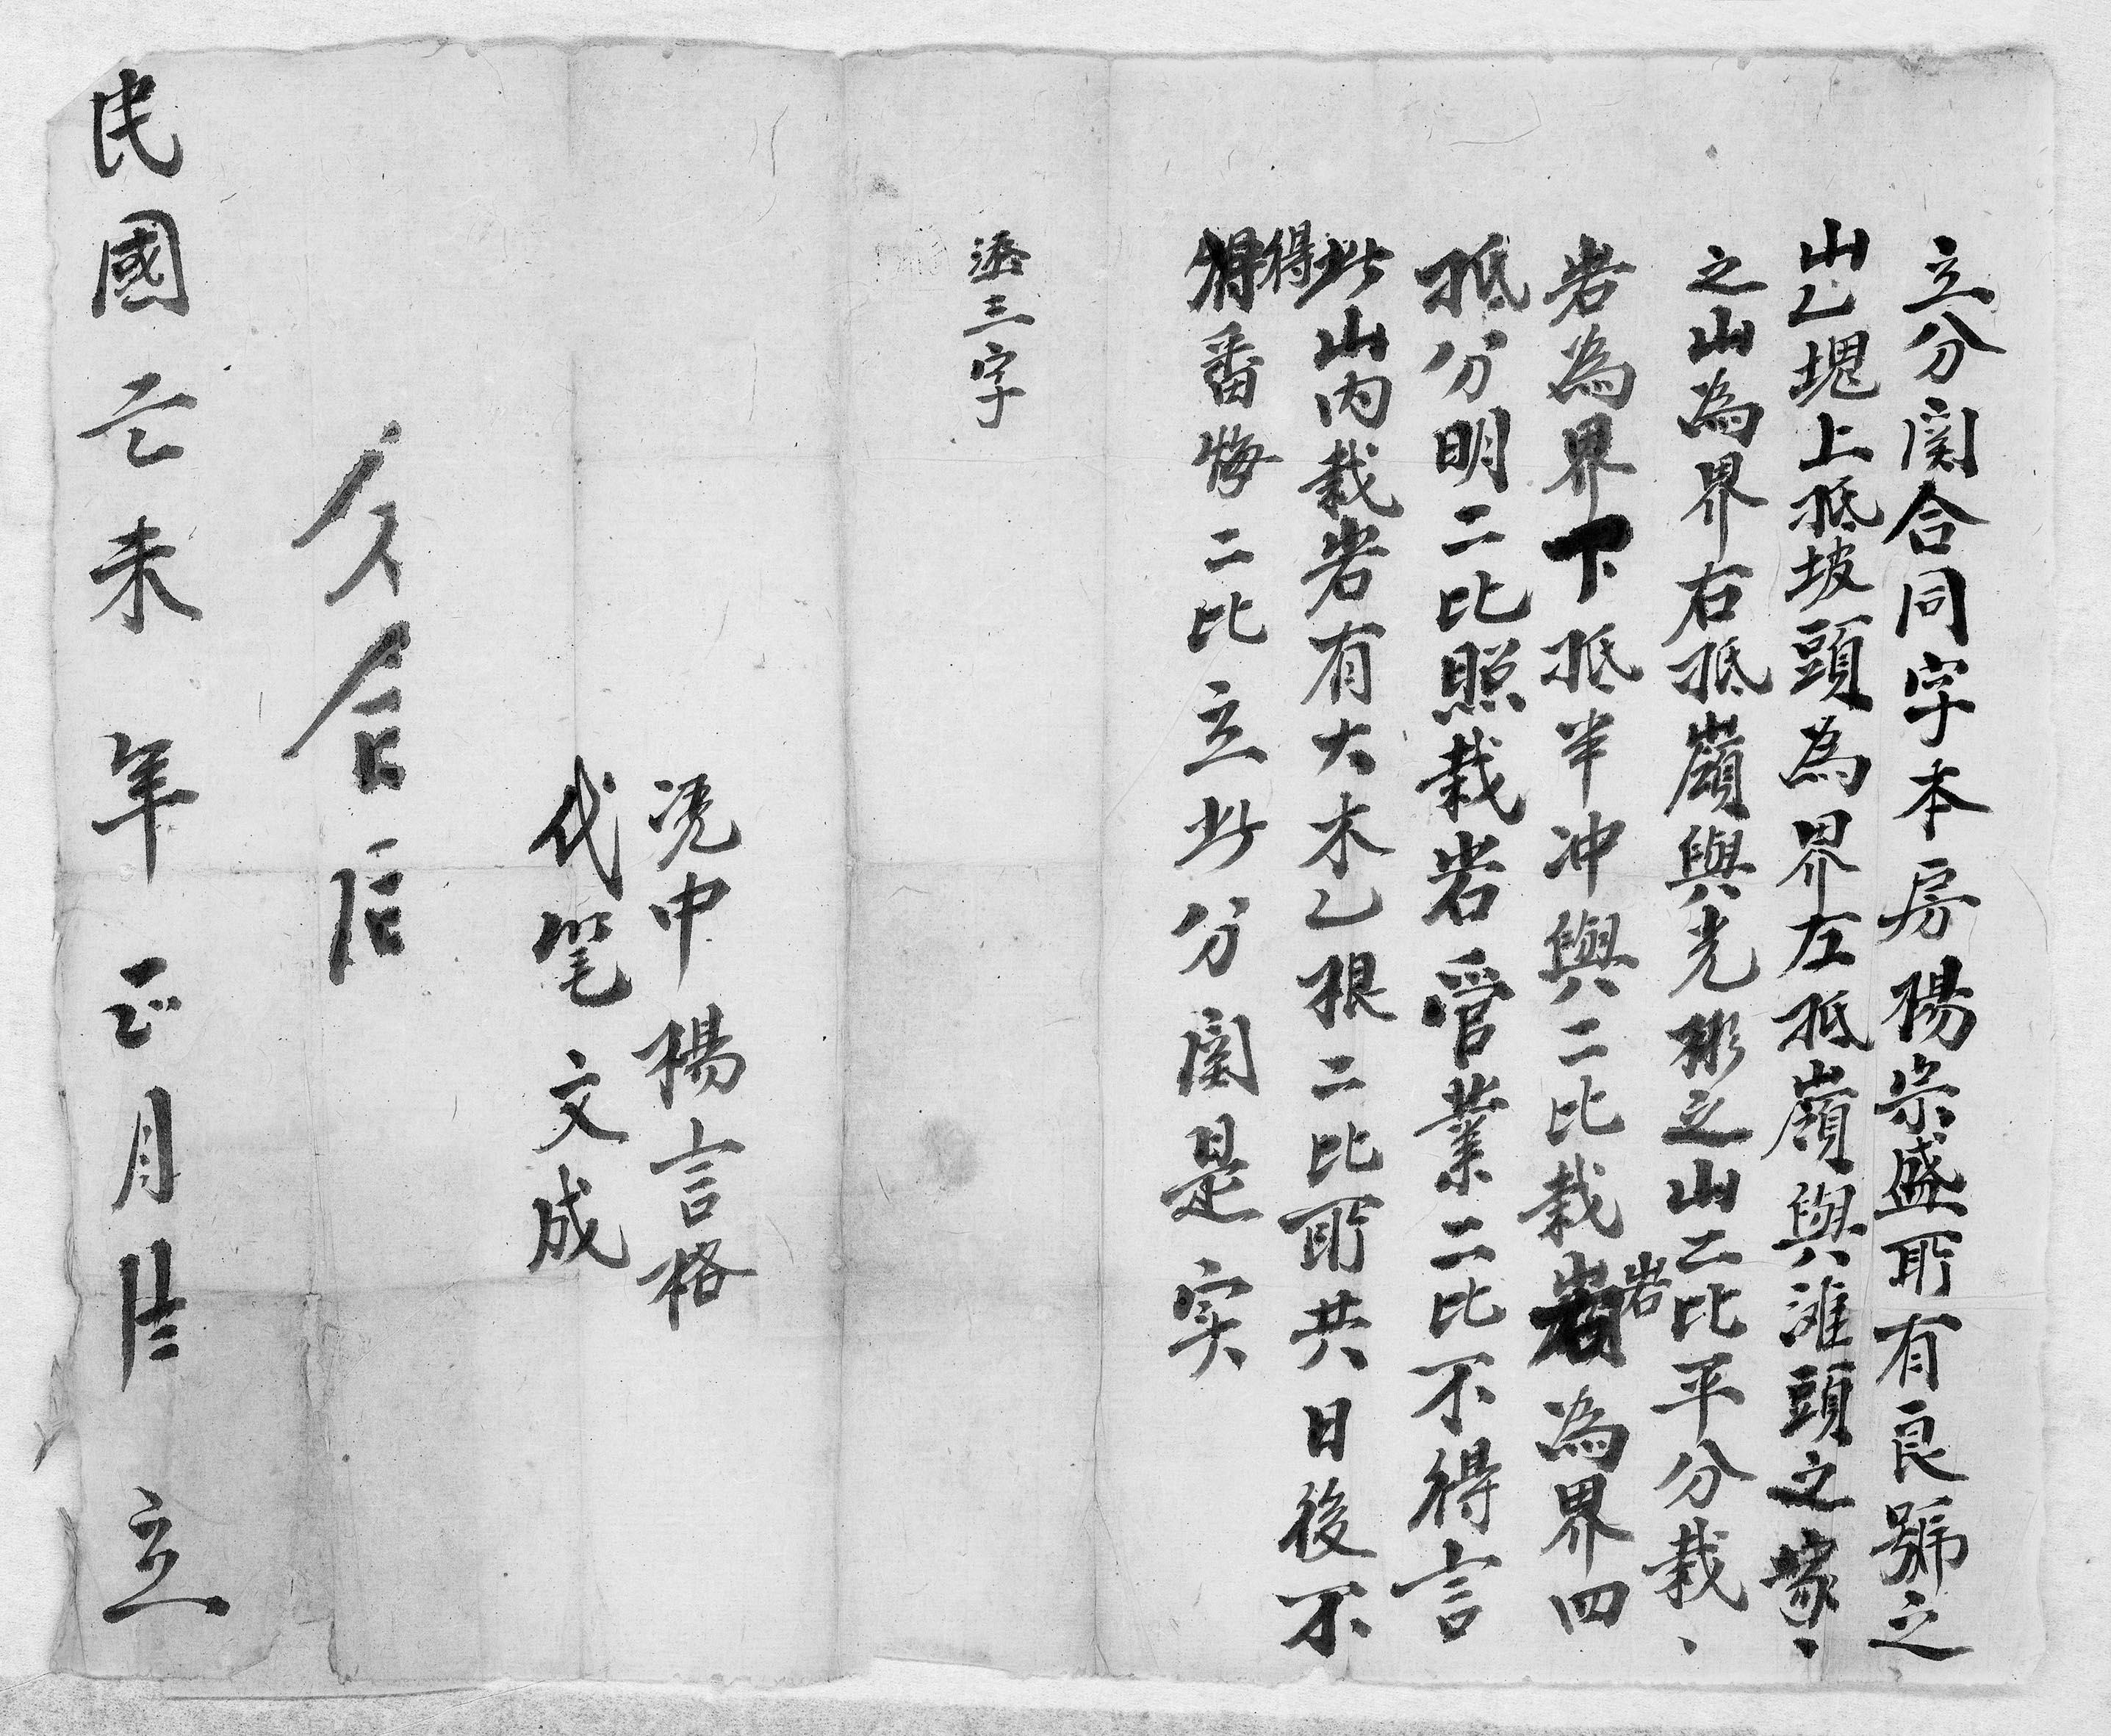 立分関合同字本房楊宗盛所有良號之
山乙塊上抵坡頭為界左抵嶺與滩頭之塚、
之山為界右抵嶺與光彬之山二比平分栽、
岩為界下抵半冲與二比栽岩為界四
抵分明二比照栽岩管業二比不得言
此山内栽岩有大木乙根二比所共日後不
得番悔二比立此分関是实
添三字
凭中楊言格
代笔文成
民國乙未年正月廿三立